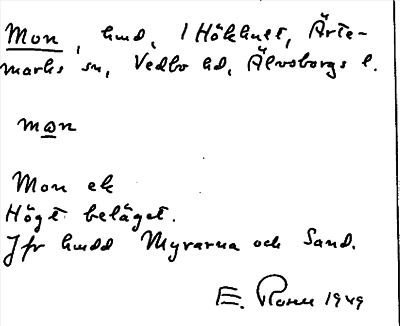 Mon, hmd, i Hökhult, Ärte-
marks sn, Vedbo hd, Älvsborgs l.
mon
Mon ek
Högt beläget.
Jfr hmdd Myrarna och Sand.
E. 1949